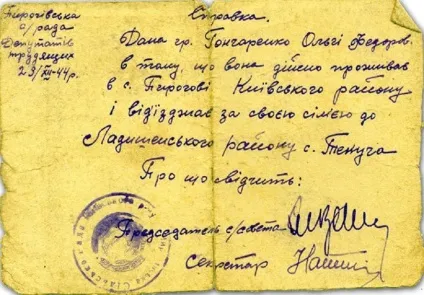 Пирогівська
с/рада
Депутатів
трудящих
29/XII-44р.
Справка.
Дана гр. Гончаренко Ользі Федоров.
в тому, що вона дійсно проживає
в с. Пирогові Київського району
і відїзджає за своєю сімєю до
Ладишенського району с. Текуча
Про що свідчить:
Председатель с/совета
Секретар